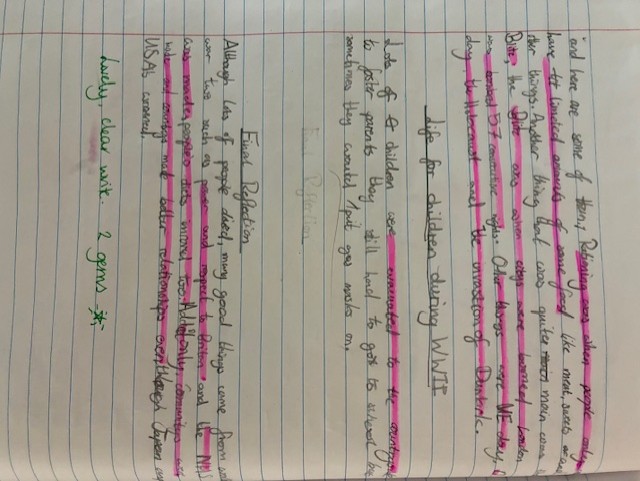 and here are some of them, Rationing was when people only
have limited amounts of some food like meat, sweets or
other things. Another thing that was quite main was
Blitz, the Blitz was when citys were bombed London
was bombed 57 consecutive nights. Other things were VE day,
day, the Holocaust and the evacuation of Dunkirk.
Life for children during WWII
Lots of children were evacuated to the country
to foster parents they still had to go to school
sometimes they would put gas masks on.
Final Reflection
Final Reflection
Although lots of people died, many good things came from
war two such as power and respect to Britain and the NHS
was made, people's diets too. Additionly,
and countrys made better relationships even though Japan
USA's
Lovely, clear write. 2 gems